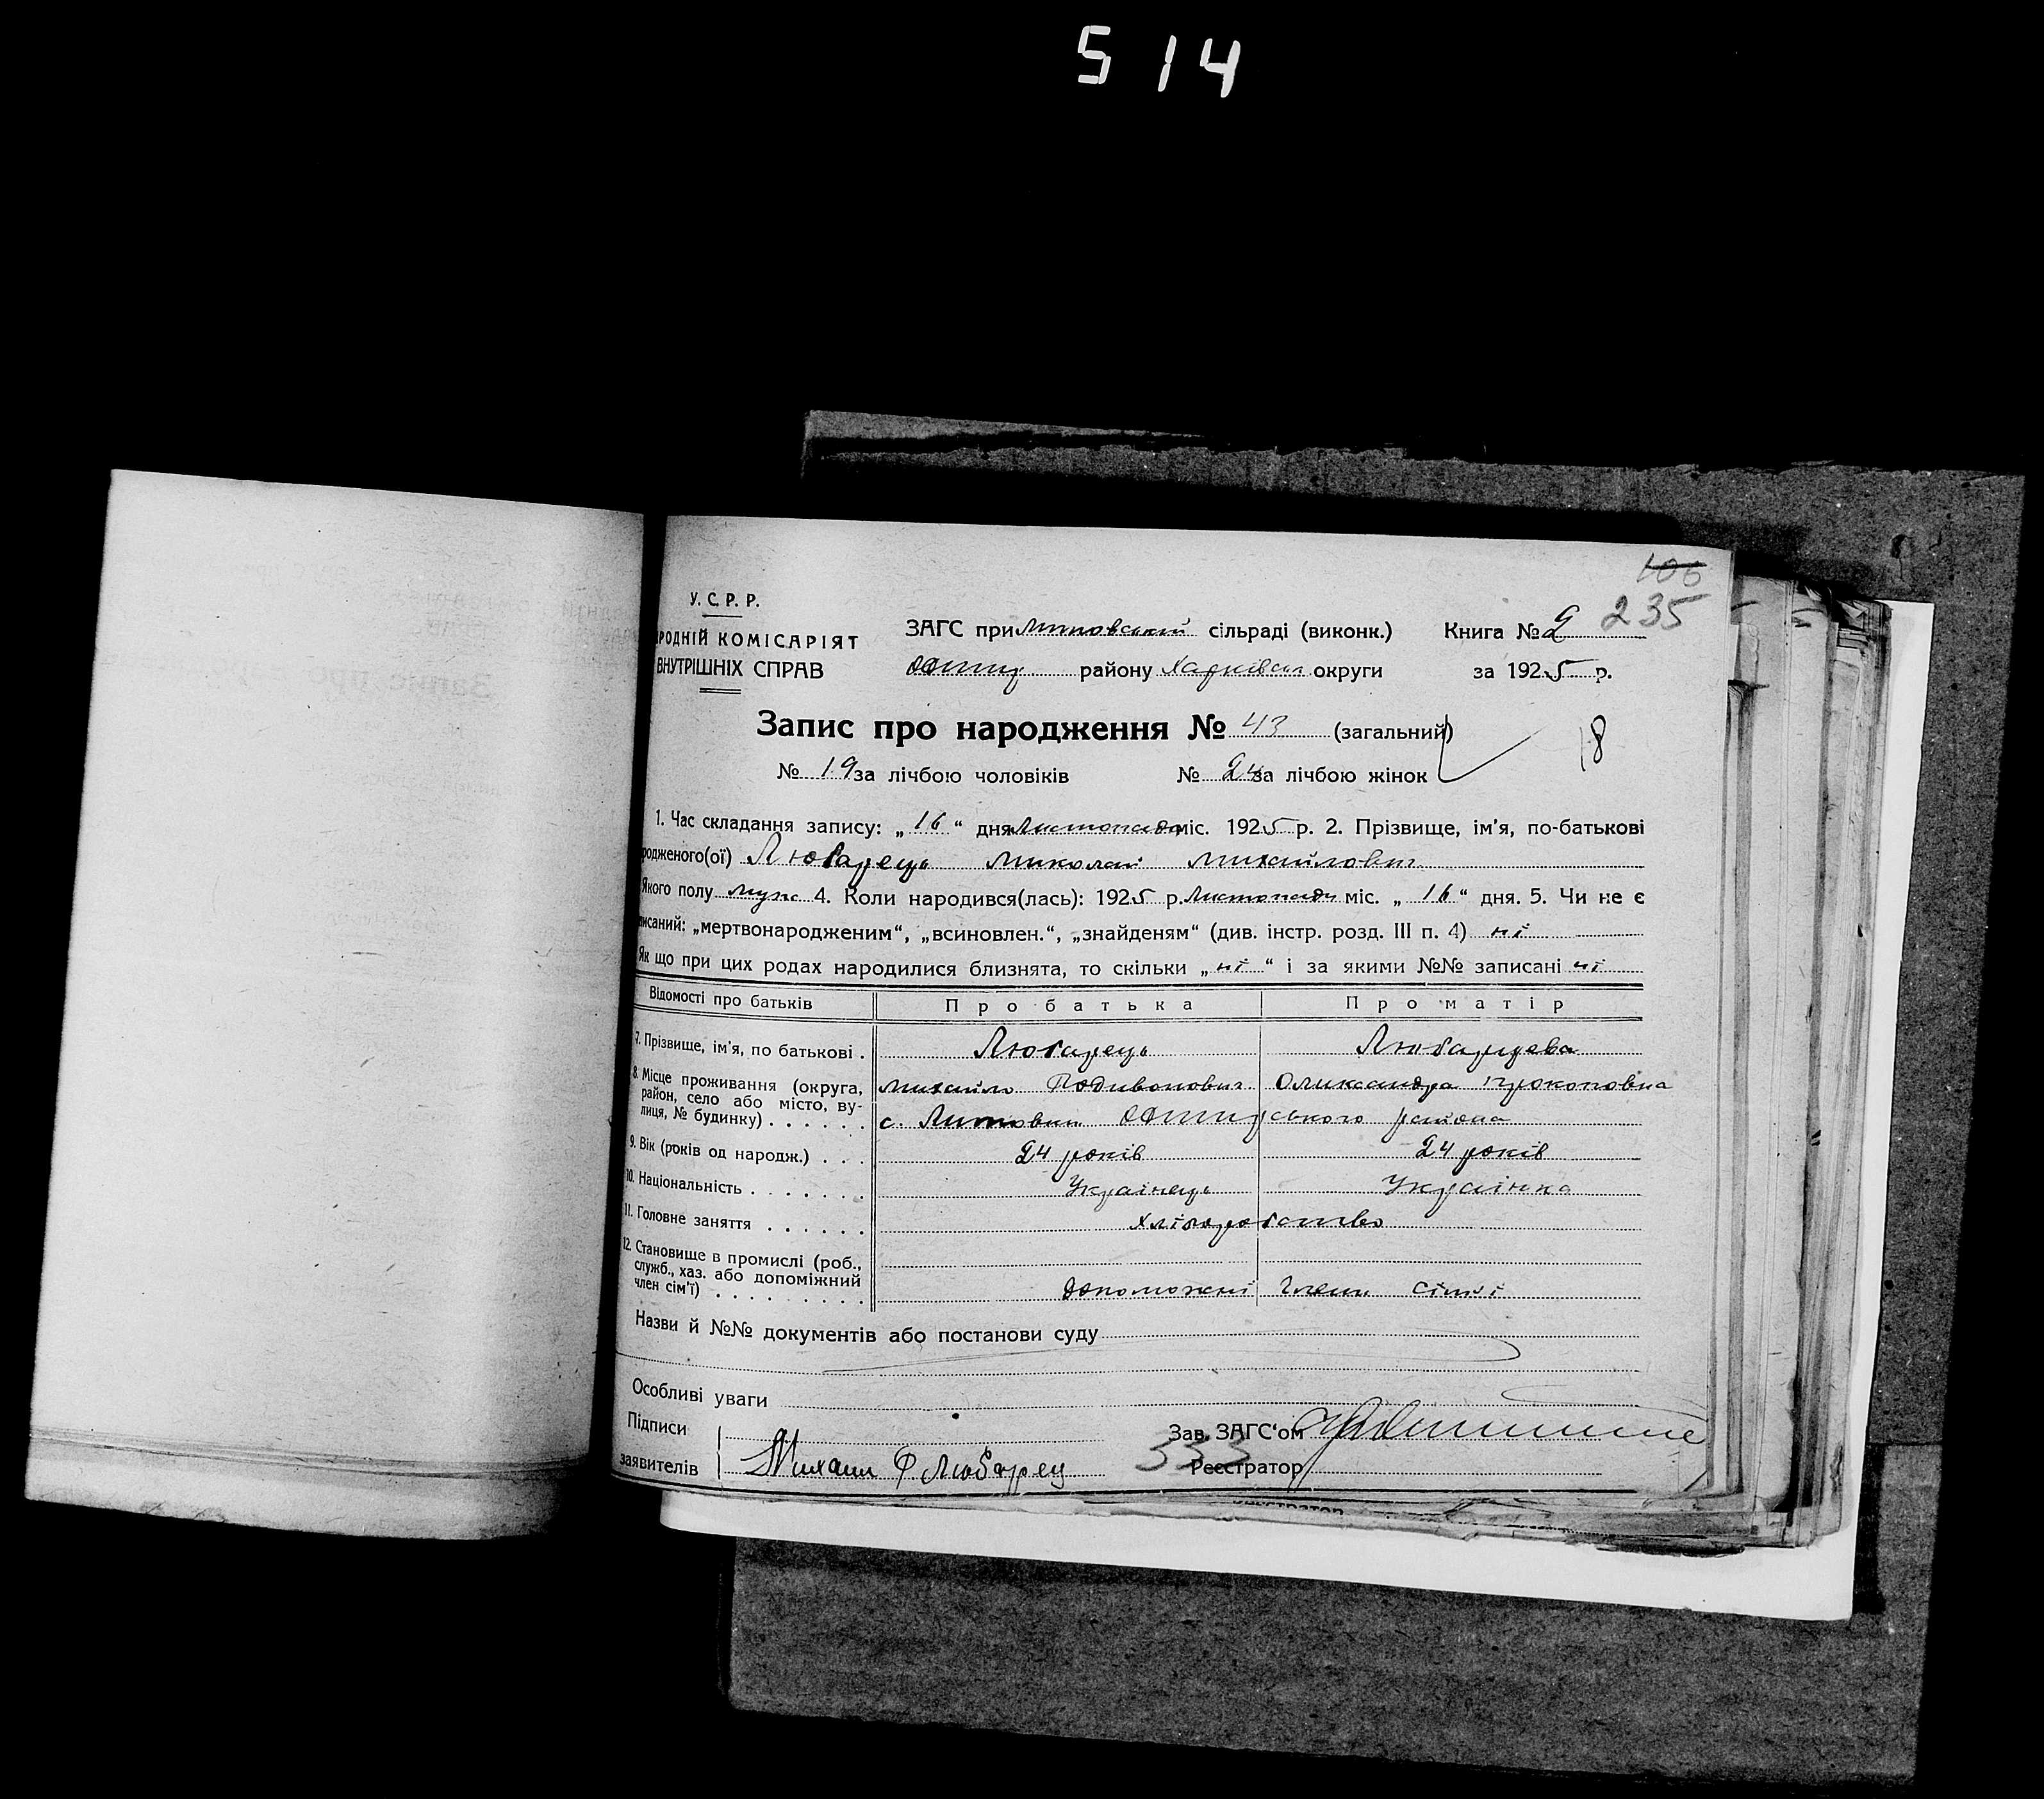 514
106
235
У. С. Р. Р.
РОДНІЙ КОМІСАРІЯТ
ВНУТРІШНІХ СПРАВ
ЗАГС при Литовській сільраді (виконк.) Книга № 2
району Харківськ округи за 1925 р.
Запис про народження № 43 (загальний)
18
№ 19 за лічбою чоловіків № 24 за лічбою жінок
1. Час складання запису: „16“ дня Листопада міс. 1925 р. 2. Прізвище, ім’я, по-батькові
родженого(ої) Любарець Миколай Михайлович
Якого полу муж 4. Коли народився(лась): 1925 р. Листопада міс. „16“ дня. 5. Чи не є
писаний: „мертвонародженим“, „всиновлен.“, „знайденям“ (див. інстр. розд. III п. 4) ні
Як що при цих родах народилися близнята, то скільки „ні“ і за якими №№ записані ні
Відомості про батьків Про батька Про матір
7. Прізвище, ім’я, по батькові . Любарець Любарцева
8. Місце проживання (округа, район, село або місто, вулиця, № будинку) . . . . . .
Михайло Олександра Прокоповна
с. Литовки ського района
9. Вік (років од народж.) . . . 24 років 24 років
10. Національність . . . . . . . Українець Українка
11. Головне заняття . . . . . . Хліборобство
12. Становище в промислі (роб., служб., хаз. або допоміжний член сім’ї) . . . . . . . . .
допоможні члени сім'ї
Назви й №№ документів або постанови суду
Особливі уваги
Підписи
заявителів Михаил Ф Любарец
Зав. ЗАГС’ом
333
Реєстратор